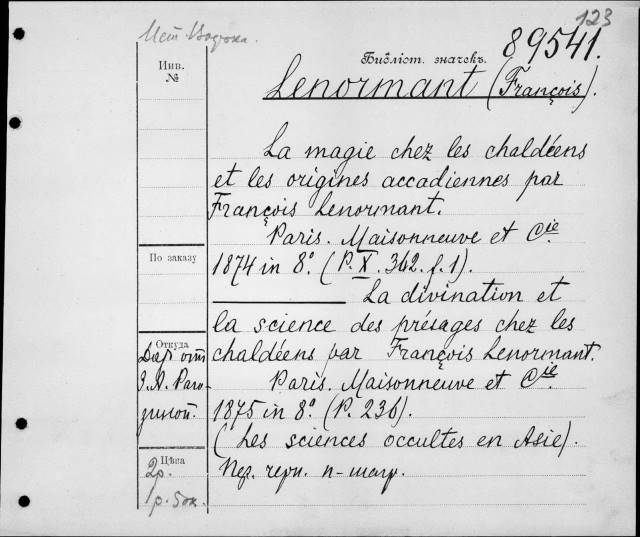 123
Ист. Востока.
Библіот. значекъ. 89541.
Инв.
№
Lenormant (François).
La magie chez les chaldéens
et les origines accadiennes par
François Lenormant.
Paris. Maisonneuve et Cie
По заказу
1874 in 8.º (P. X. 362. f. 1).
La divination et
la science des présages chez les
Откуда
Даръ отъ
chaldéens par François Lenormant.
З. А. Раго-
Paris. Maisonneuve et Cie.
зиной.
1875 in 8º (P. 236).
(Les sciences occultes en Asie).
Цѣна
2р.
1р. 50к.